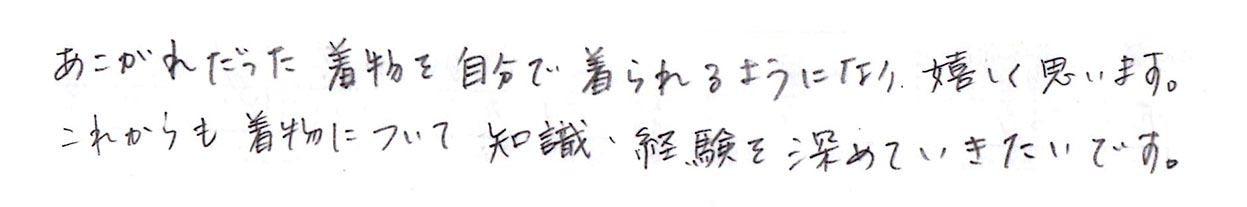 あこがれだった着物を自分で着られるようになり、嬉しく思います。
これからも着物について知識、経験を深めていきたいです。